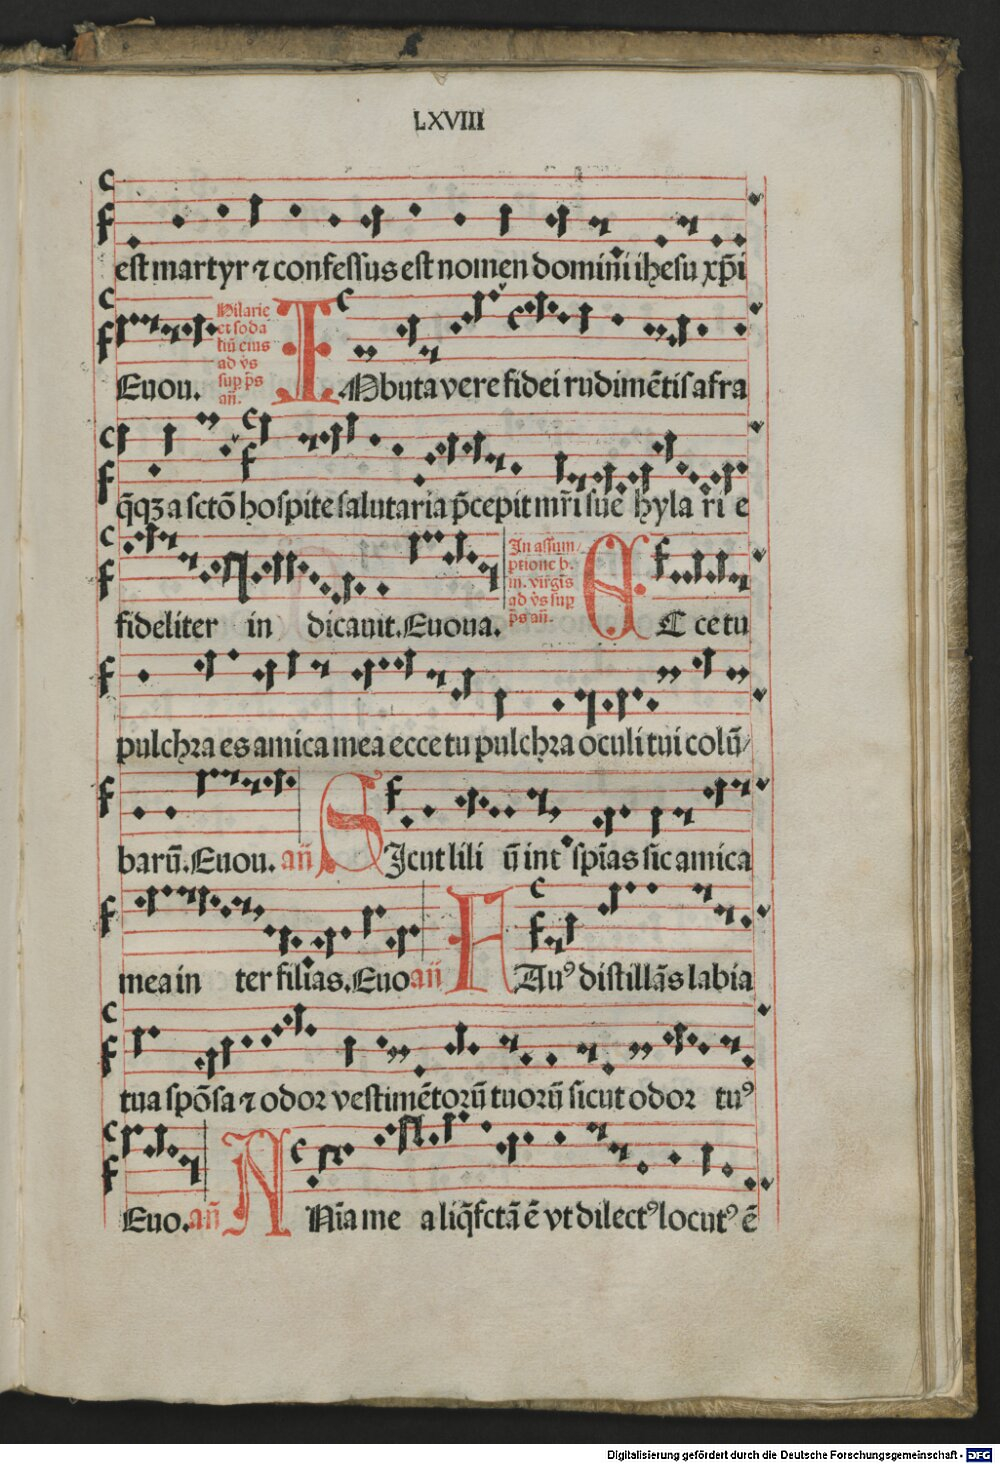 LXVIII
est martyr ⁊ confessus est nomen domini ihesu xp̄i
Hilarie
et soda
liū eius
ad v̄s
sup p̄s
an̄.
Euou. INbuta vere fidei rudimētis afra
q̄qꝫ a sctō hospite salutaria p̄cepit mr̄i sue hyla ri e
fideliter in dicauit. Euoua.
In assum/
ptione b.
m. virgīs
ad v̄s sup
p̄s an̄.
ECce tu
pulchra es amica mea ecce tu pulchra oculi tui colū/
barū. Euou. an̄ SIcut lili ū int᷑ spīas sic amica
mea in ter filias. Euo an̄ FAuꝰ distillās labia
tua spōsa ⁊ odor vestimētorū tuorū sicut odor tuꝰ
Euo. an̄ ANīa me a liq̄fctā ē vt dilectꝰ locutꝰ ē
Digitalisierung gefördert durch die Deutsche Forschungsgemeinschaft - DFG